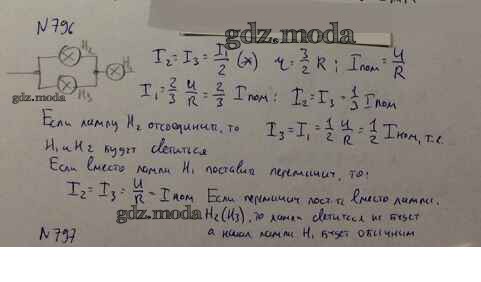 N796
gdz.moda
H₂
H₁
H₃
gdz.moda
I₂ = I₃ = I₁/2 (x) r = 3/2 R; Iном = U/R
I₁ = 2/3 U/R = 2/3 Iном; I₂ = I₃ = 1/3 Iном
Если лампу H₂ отсоединит, то I₃ = I₁ = 1/2 U/R = 1/2 Iном, т.е.
H₁ и H2 будет светиться
Если вместо лампы H₁ поставить перемычк, то:
I₂ = I₃ = U/R = Iном Если перемычк пост. вместо лампы.
gdz.moda H₂(H₃), то лампы светится не будет
N797 а накал лампы H₁ будет обычным